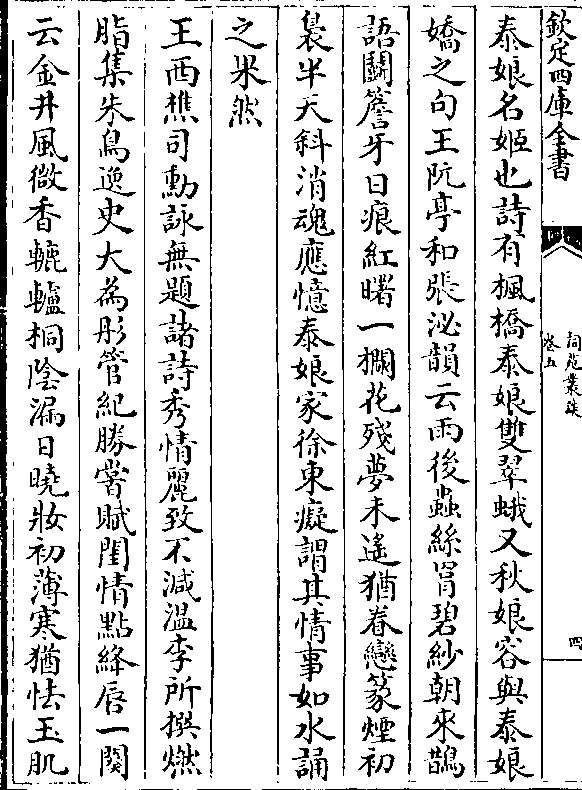 欽定四庫全書
詞苑叢談
卷五
四
泰娘名姬也詩有楓橋泰娘雙翠蛾又秋娘容與泰娘
嬌之句王阮亭和張泌韻云雨後蟲絲罥碧紗朝來鵲
語鬭簷牙日痕紅曙一攔花殘夢未遙猶眷戀篆煙初
裊半天斜消魂應憶泰娘家徐東癡謂其情事如水誦
之果然
王西樵司勳詠無題諸詩秀情麗致不減溫李所撰燃
脂集朱鳥逸史大為彤管紀勝嘗賦閨情點絳唇一闋
云金井風微香轆轤桐陰漏日曉妝初薄寒猶怯玉肌